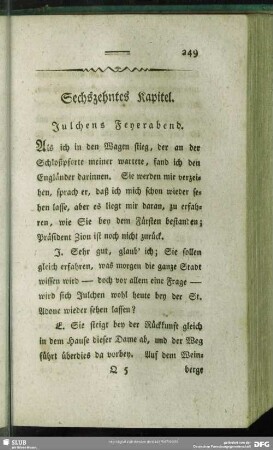 249
Sechszehntes Kapitel.
Julchens Feyerabend.
Als ich in den Wagen stieg, der an der
Schloßpforte meiner wartete, fand ich den
Engländer darinnen. Sie werden mir verzei-
hen, sprach er, daß ich mich schon wieder se-
hen lasse, aber es liegt mir daran, zu erfah-
ren, wie Sie bey dem Fürsten bestanden;
Präsident Zion ist noch nicht zurück.
J. Sehr gut, glaub' ich; Sie sollen
gleich erfahren, was morgen die ganze Stadt
wissen wird — doch vor allem eine Frage —
wird sich Julchen wohl heute bey der St.
Adoue wieder sehen lassen?
E. Sie steigt bey der Rückkunft gleich
in dem Hause dieser Dame ab, und der Weg
führt überdies da vorbey. Auf dem Wein-
Q 5 berge
SLUB